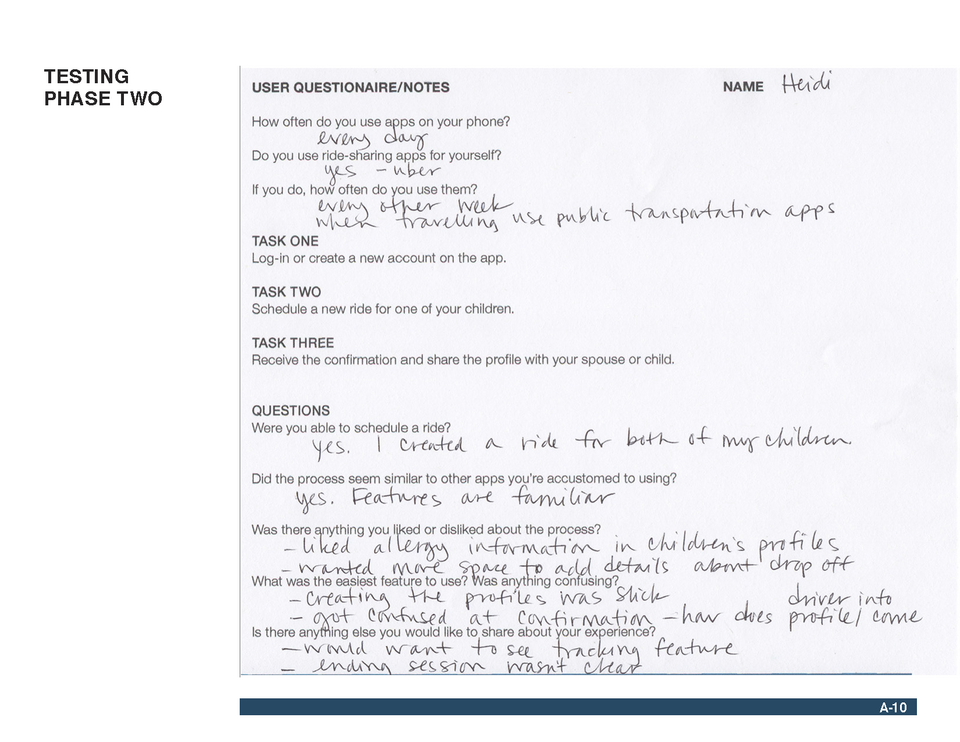 TESTING
PHASE TWO
USER QUESTIONAIRE/NOTES NAME Heidi
How often do you use apps on your phone?
every day
Do you use ride-sharing apps for yourself?
yes - uber
If you do, how often do you use them?
every other week
when travelling use public transportation apps
TASK ONE
Log-in or create a new account on the app.
TASK TWO
Schedule a new ride for one of your children.
TASK THREE
Receive the confirmation and share the profile with your spouse or child.
QUESTIONS
Were you able to schedule a ride?
yes. I created a ride for both of my children.
Did the process seem similar to other apps you're accustomed to using?
yes. Features are familiar
Was there anything you liked or disliked about the process?
- liked allergy information in children's profiles
- wanted more space to add details about drop off
What was the easiest feature to use? Was anything confusing?
- creating the profiles was slick driver into
- got confused at confirmation - how does profile/ come
Is there anything else you would like to share about your experience?
- would want to see tracking feature
- ending session wasn't clear
A-10